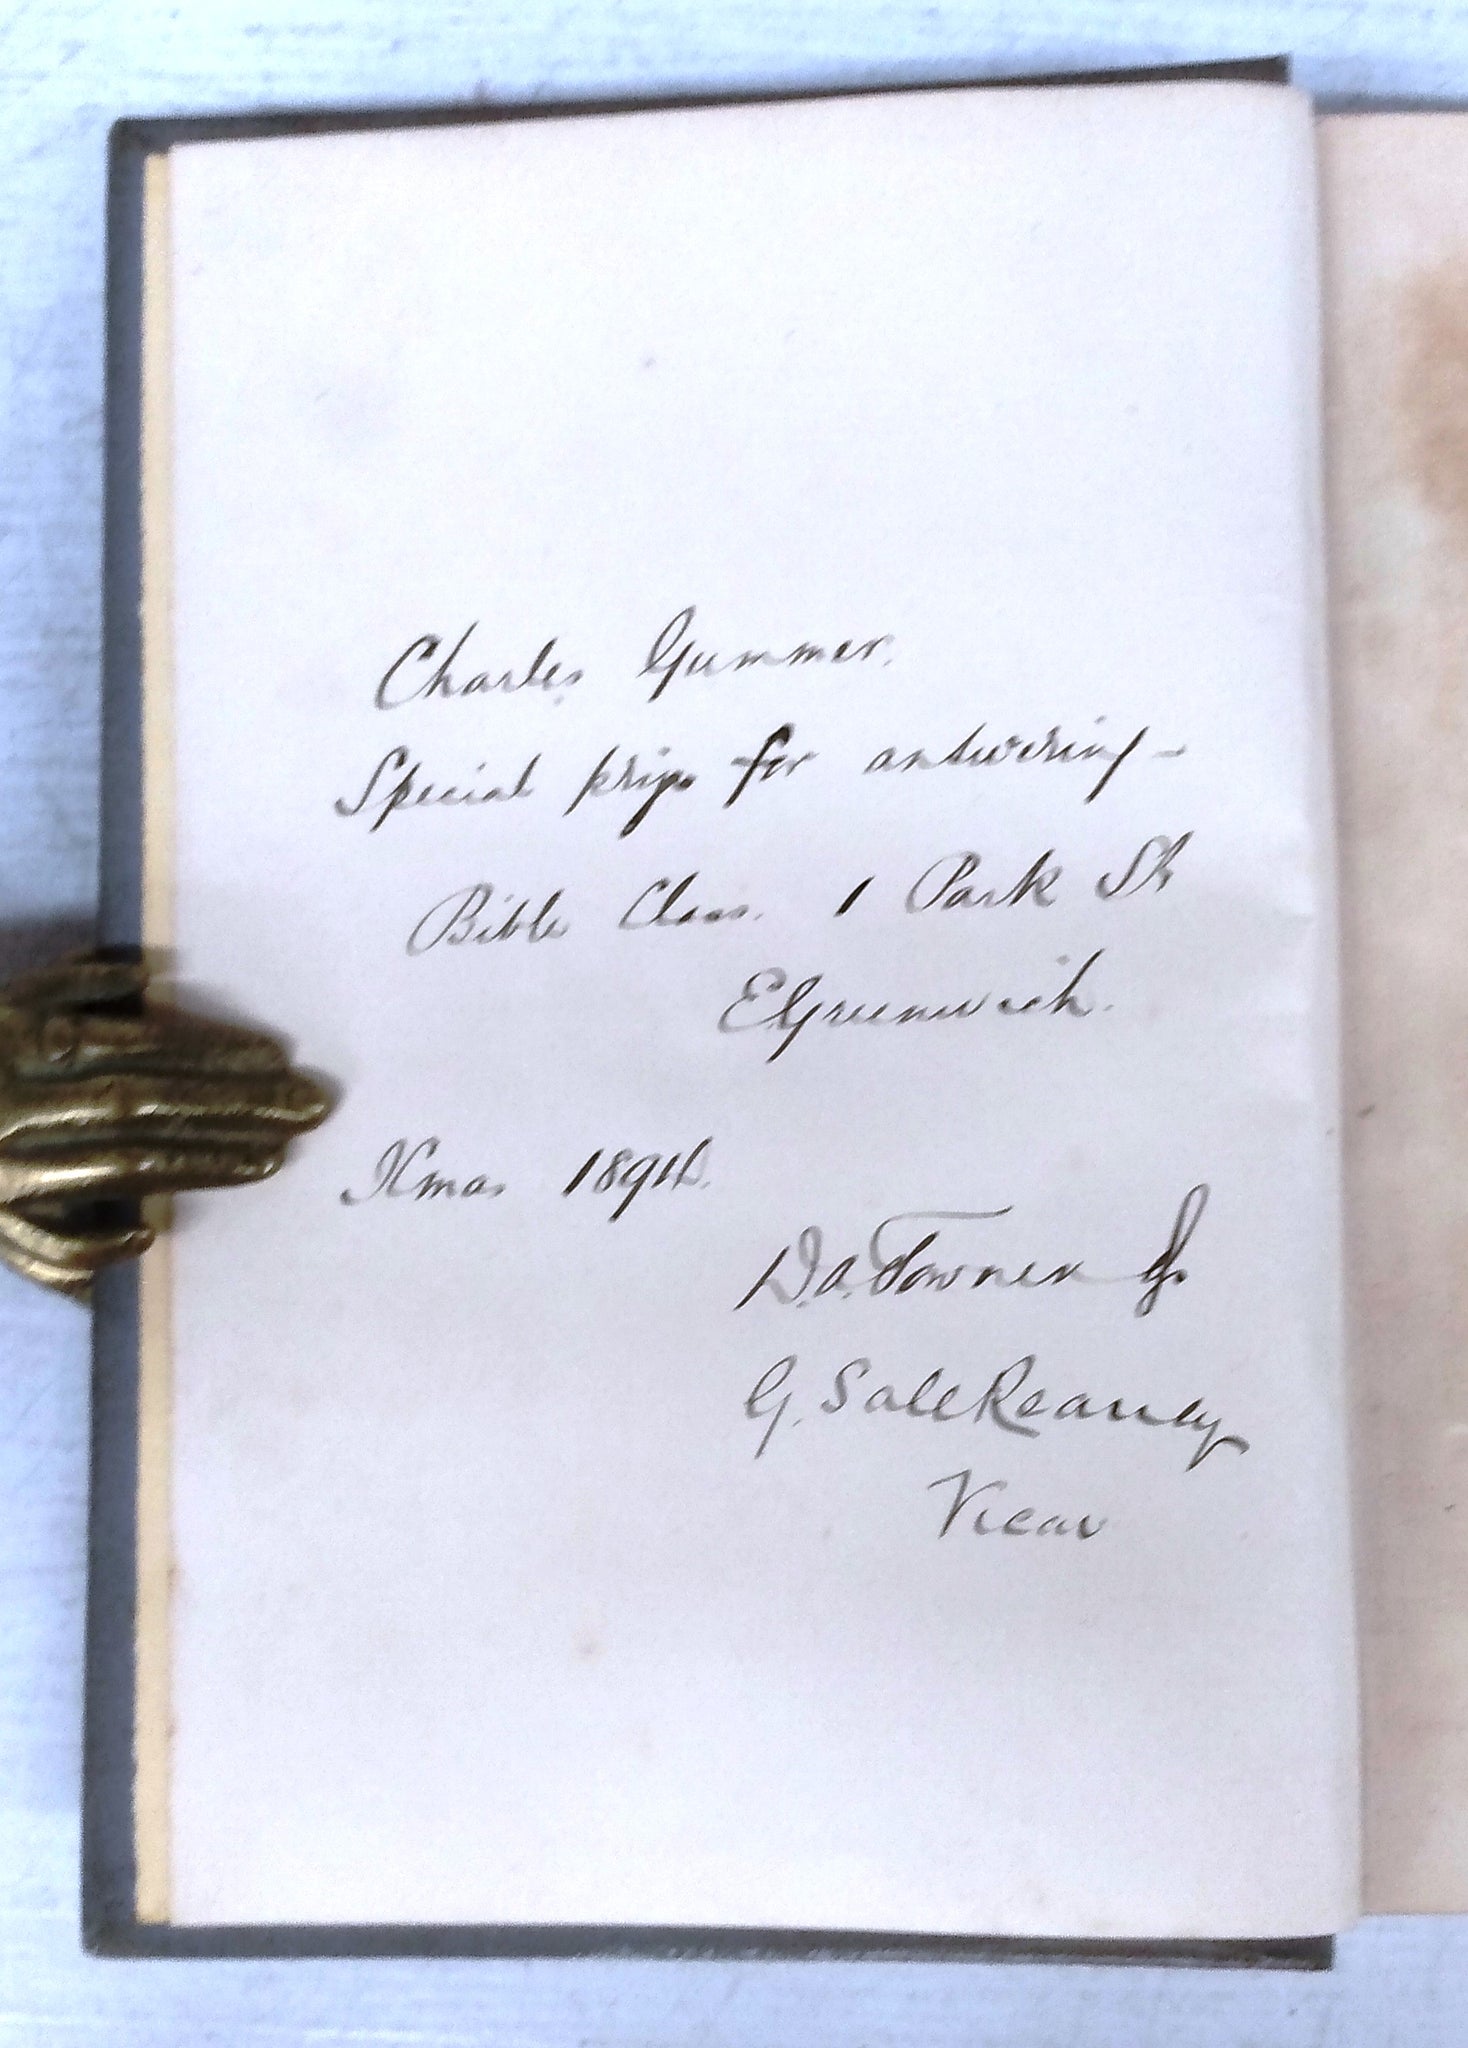 Charles Gummer.
Special prize for answering -
Bible Class. 1 Park St
E Greenwich.
Xmas 1894.
D. A. Towner Jr
G. Sale Reaney
Vicar